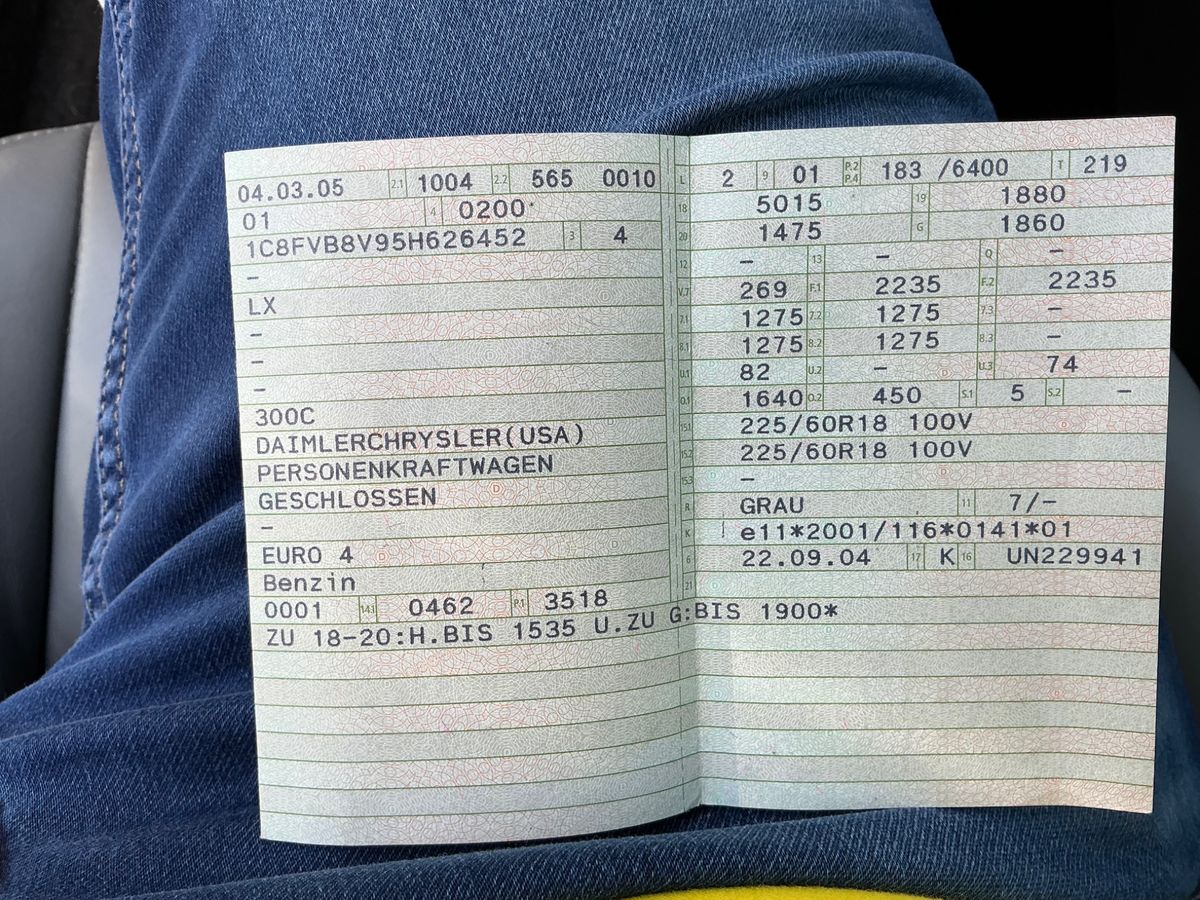 04.03.05 2.1 1004 2.2 565 0010
01 4 0200
1C8FVB8V95H626452 3 4
–
LX
–
–
–
300C
DAIMLERCHRYSLER(USA)
PERSONENKRAFTWAGEN
GESCHLOSSEN
–
EURO 4
Benzin
0001 14.1 0462 P.1 3518
ZU 18-20:H.BIS 1535 U.ZU G:BIS 1900*
L 2 9 01 P.2 P.4 183 /6400 T 219
18 5015 19 1880
20 1475 G 1860
12 – 13 – Q –
V.7 269 F.1 2235 F.2 2235
7.1 1275 7.2 1275 7.3 –
8.1 1275 8.2 1275 8.3 –
U.1 82 U.2 – U.3 74
O.1 1640 O.2 450 S.1 5 S.2 –
15.1 225/60R18 100V
15.2 225/60R18 100V
15.3 –
R GRAU 11 7/–
K e11*2001/116*0141*01
6 22.09.04 17 K 16 UN229941
21